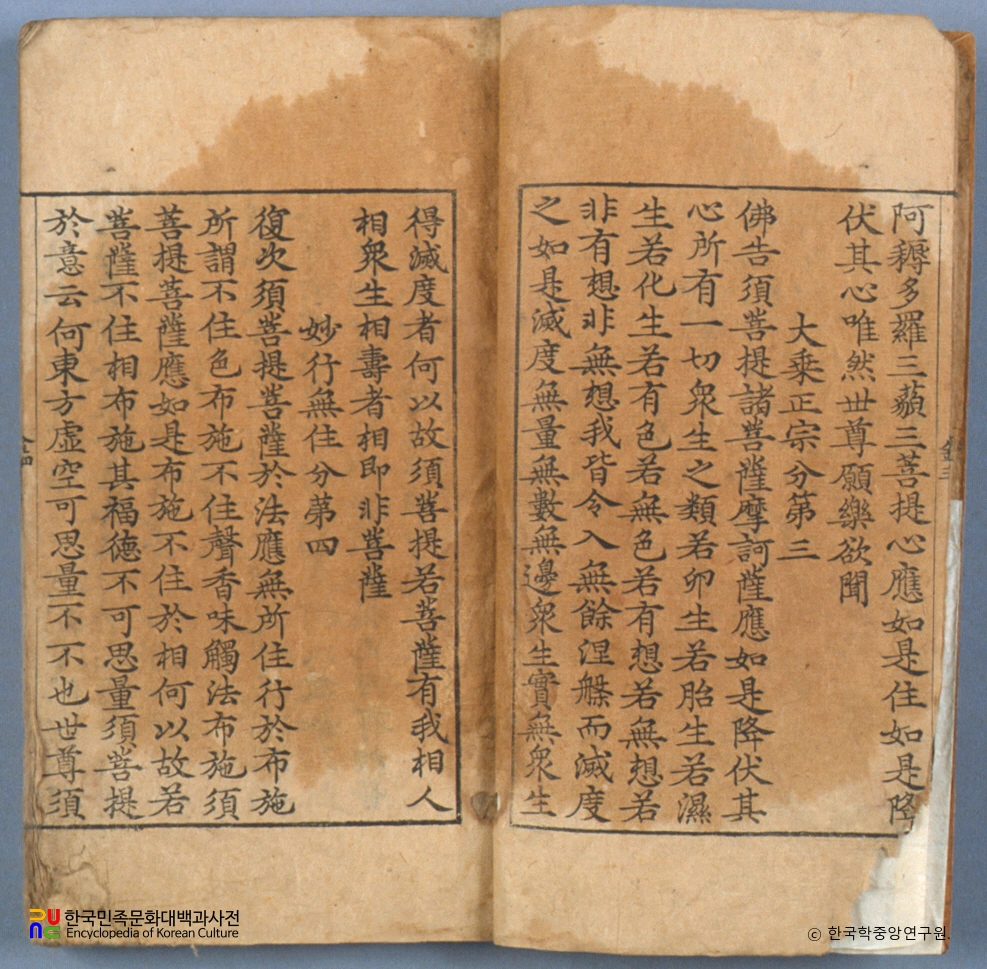 阿耨多羅三藐三菩提心應如是住如是降
伏其心唯然世尊願樂欲聞
大乘正宗分第三
佛告須菩提諸菩薩摩訶薩應如是降伏其
心所有一切衆生之類若卵生若胎生若濕
生若化生若有色若無色若有想若無想若
非有想非無想我皆令入無餘涅槃而滅度
之如是滅度無量無數無邊衆生實無衆生
得滅度者何以故須菩提若菩薩有我相人
相衆生相壽者相即非菩薩
妙行無住分第四
復次須菩提菩薩於法應無所住行於布施
所謂不住色布施不住聲香味觸法布施須
菩提菩薩應如是布施不住於相何以故若
菩薩不住相布施其福德不可思量須菩提
於意云何東方虛空可思量不不也世尊須
한국민족문화대백과사전
Encyclopedia of Korean Culture
ⓒ 한국학중앙연구원.